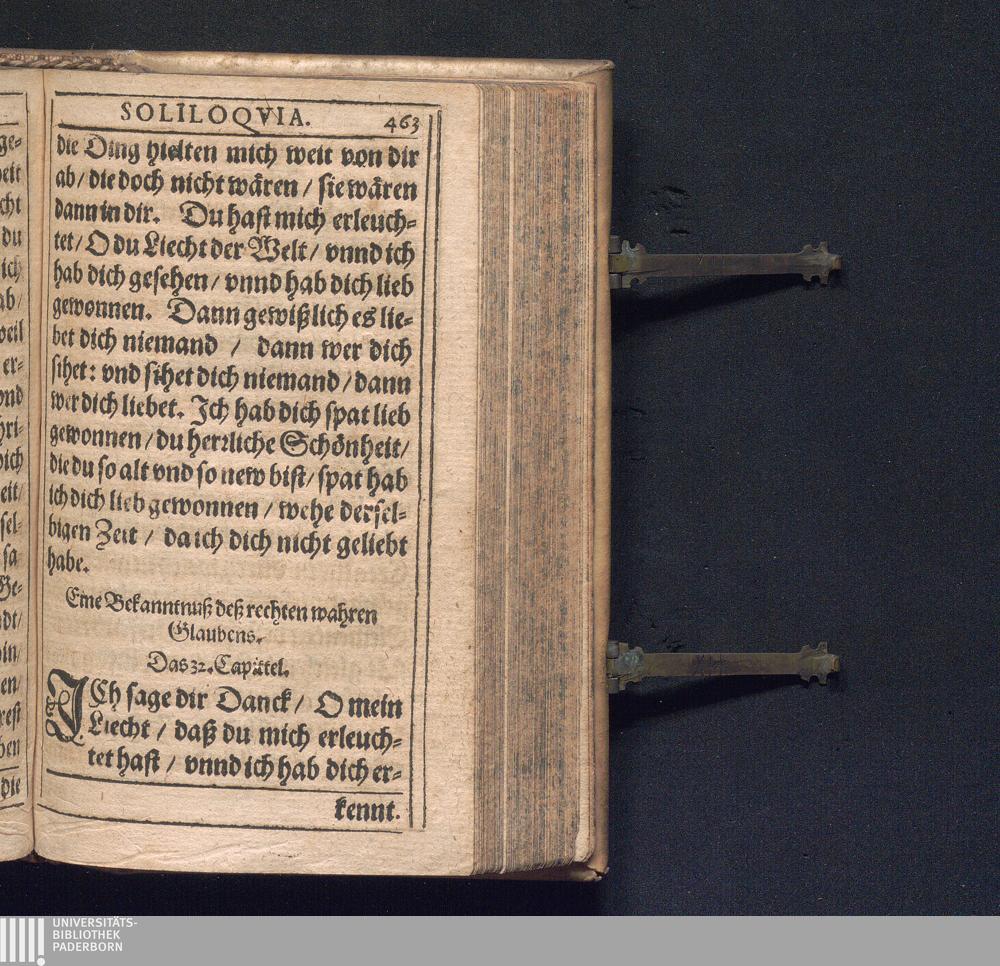 SOLILOQVIA. 463
die Ding hielten mich weit von dir
ab/ die doch nicht wären / sie wären
dann in dir. Du hast mich erleuch-
tet/ O du Liecht der Welt/ vnnd ich
hab dich gesehen/ vnnd hab dich lieb
gewonnen. Dann gewißlich es lie-
bet dich niemand / dann wer dich
sihet: vnd sihet dich niemand/ dann
wer dich liebet. Ich hab dich spat lieb
gewonnen/ du herzliche Schönheit/
die du so alt vnd so new bist/ spat hab
ich dich lieb gewonnen / wehe dersel-
bigen Zeit / da ich dich nicht geliebt
habe.
Eine Bekanntnuß deß rechten wahren
Glaubens.
Das 32. Capittel.
ICh sage dir Danck/ O mein
Liecht / daß du mich erleuch-
tet hast / vnnd ich hab dich er-
kennt.
ge-
eit
cht
du
ich
ab/
weil
er-
vnd
hri-
dich
eit/
sel-
sa
Ge-
dt/
in/
en/
rest
hen
die
UNIVERSITÄTS-
BIBLIOTHEK
PADERBORN